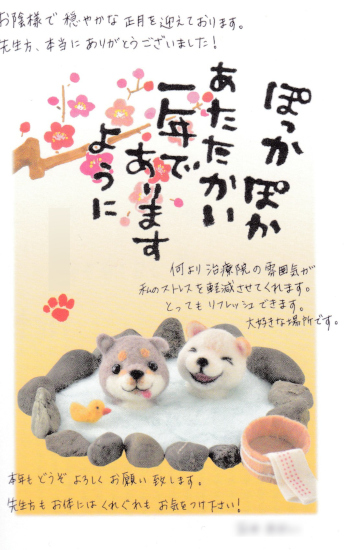 お陰様で 穏やかな 正月を 迎えております。
先生方、本当に ありがとうございました!
ぽっかぽか
あたたかい
一年で
あります
ように
何より 治療院の 雰囲気が
私のストレスを 軽減させてくれます。
とっても リフレッシュできます。
大好きな場所です。
本年も どうぞ よろしく お願い 致します。
先生方も お体には くれぐれも お気をつけ下さい!